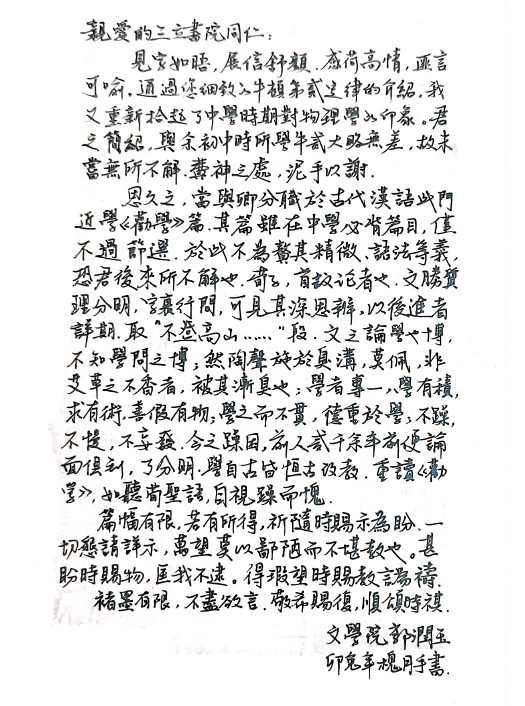 親愛的三立書院同仁：
見字如晤，展信舒顏．感荷高情，匪言
可喻．通過您細致入牛頓第貳定律的介紹，我
又重新拾起了中學時期對物理學的印象．君
之簡紹，與余初中時所學牛貳大略無差，故未
嘗無所不解．費神之處，泥手以謝．
思久之，當與卿分職於古代漢語此門
近學《勸學》篇．其篇雖在中學必背篇目，僅
不過節選．於此不為贅其精微、語法等義，
恐君後來所不解也．荀子，首故论者也．文勝質
理分明，字裏行間，可見其深思辨，以後進者
詳期．取“不登高山……”段．文之論學也博，
不知學問之博；然陶聲施於臭溝，莫佩，非
艾草之不香者，被其漸臭也；學者專一，學有積，
求有術．善假有物；學之而不貫，德重於學；不躁，
不慢，不妄發．今之躁因，前人貳千余年前便論
面俱到，了分明．學自古皆恒古改教．重讀《勸
學》，如聽荀聖語，自視躁而愧．
篇幅有限，若有所得，祈隨時賜示為盼．一
切懇請詳示，萬望莫以鄙陋而不堪教也。甚
盼時賜物，匡我不逮。得瑕望時賜教言為禱．
褚墨有限，不盡欲言．敬希賜復，順頌時祺．
文學院郭潤玉
卯兔年槐月手書．